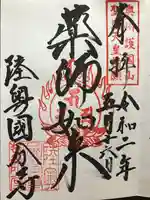 奉拝 令和二年
五月十六日
薬師如来
陸奥國分寺